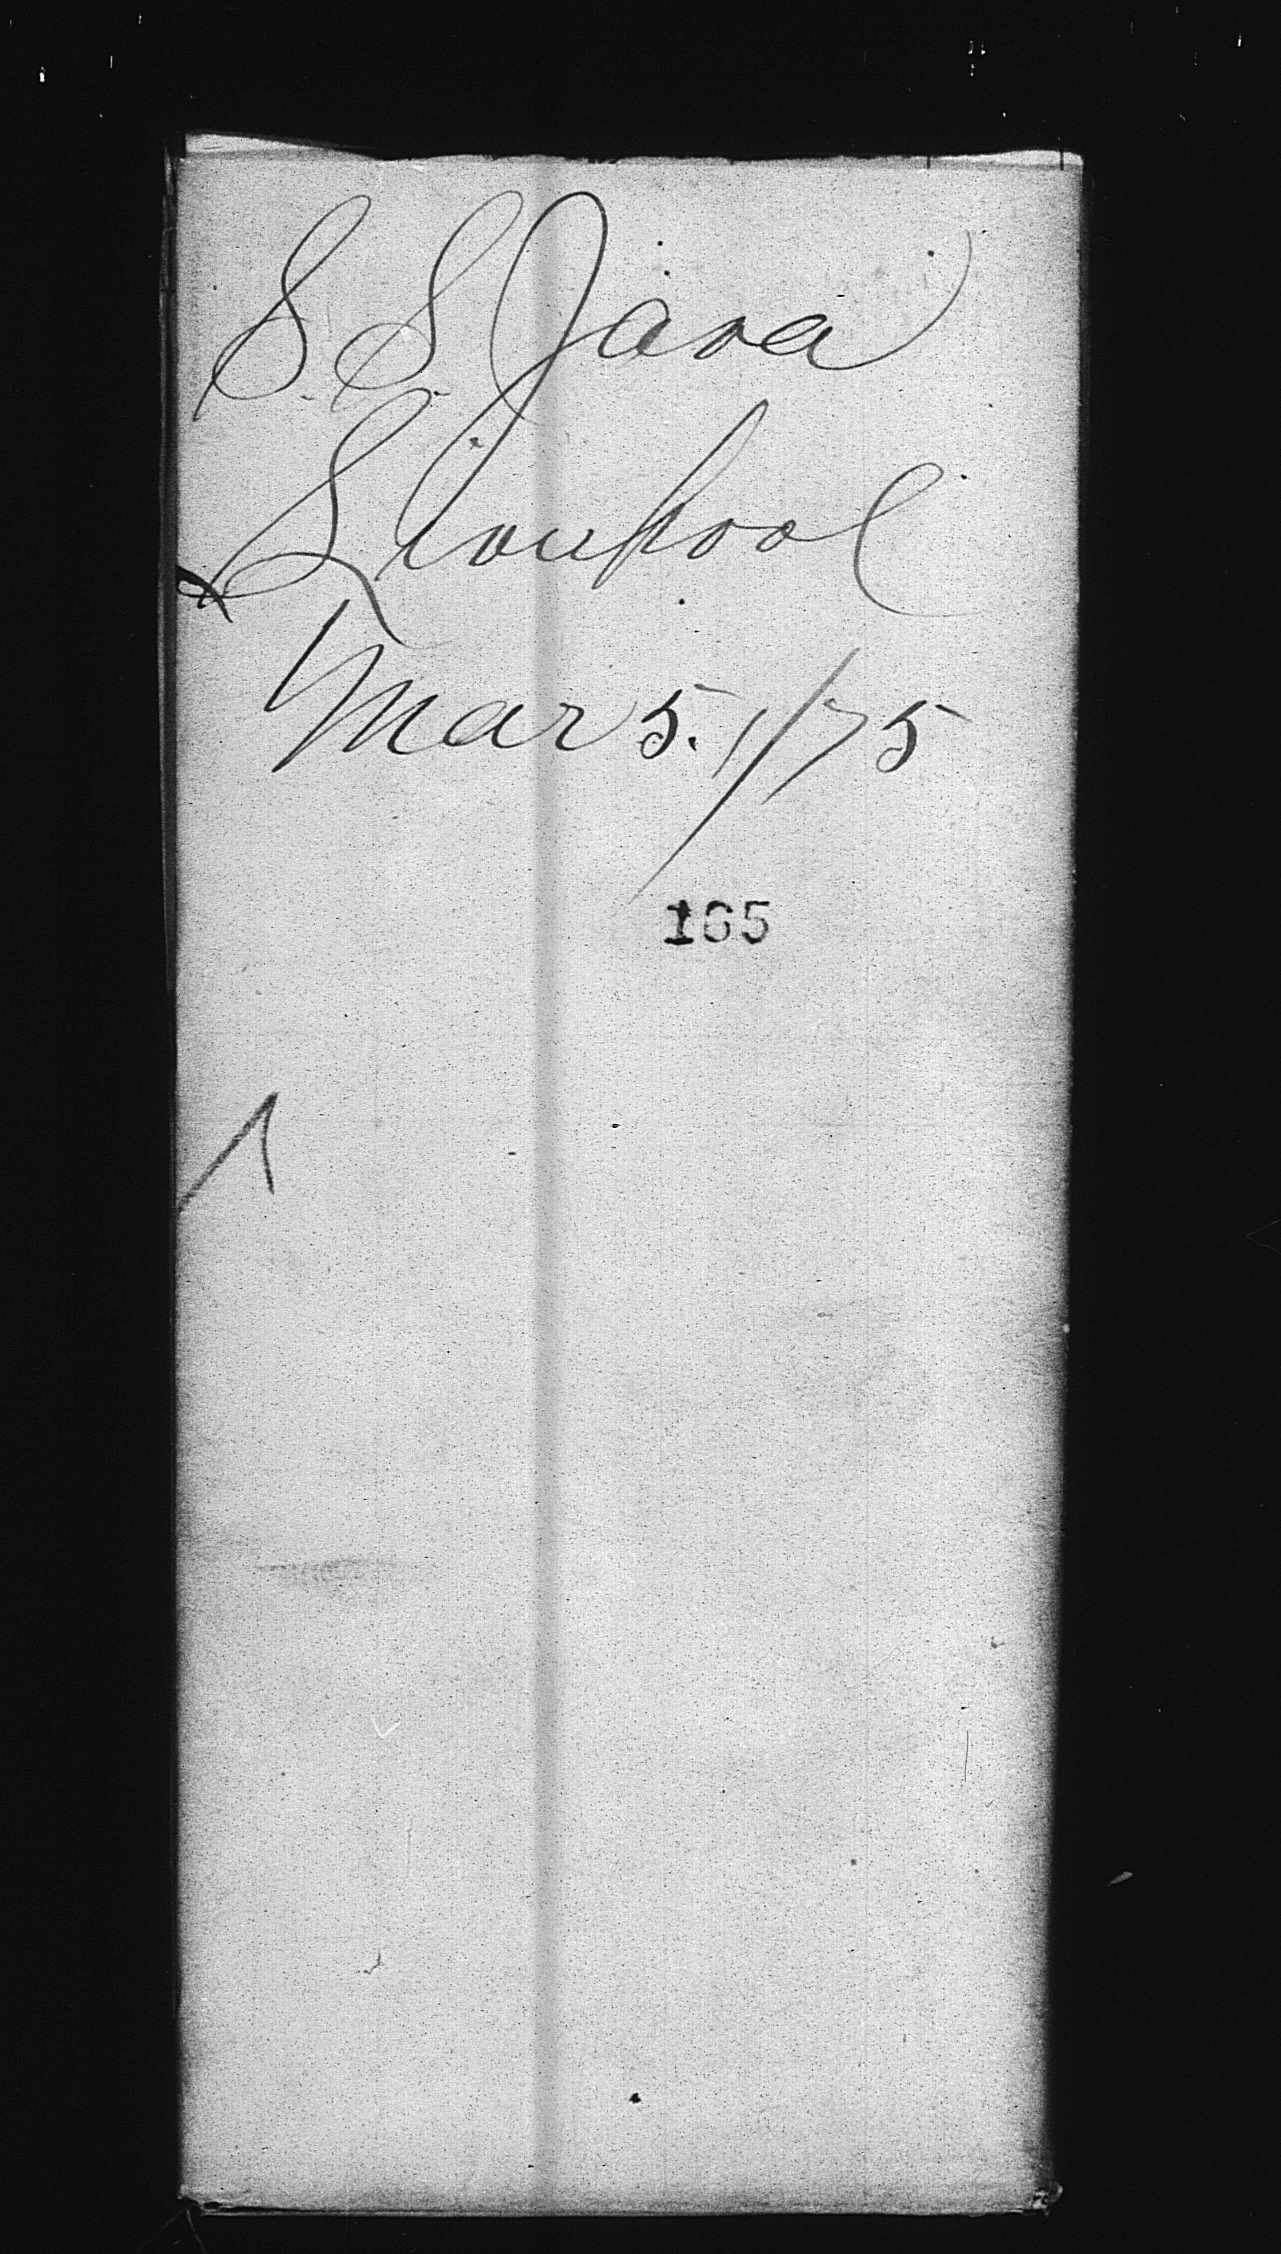 S. S. Java
Liverpool
Mar 5. /75
165